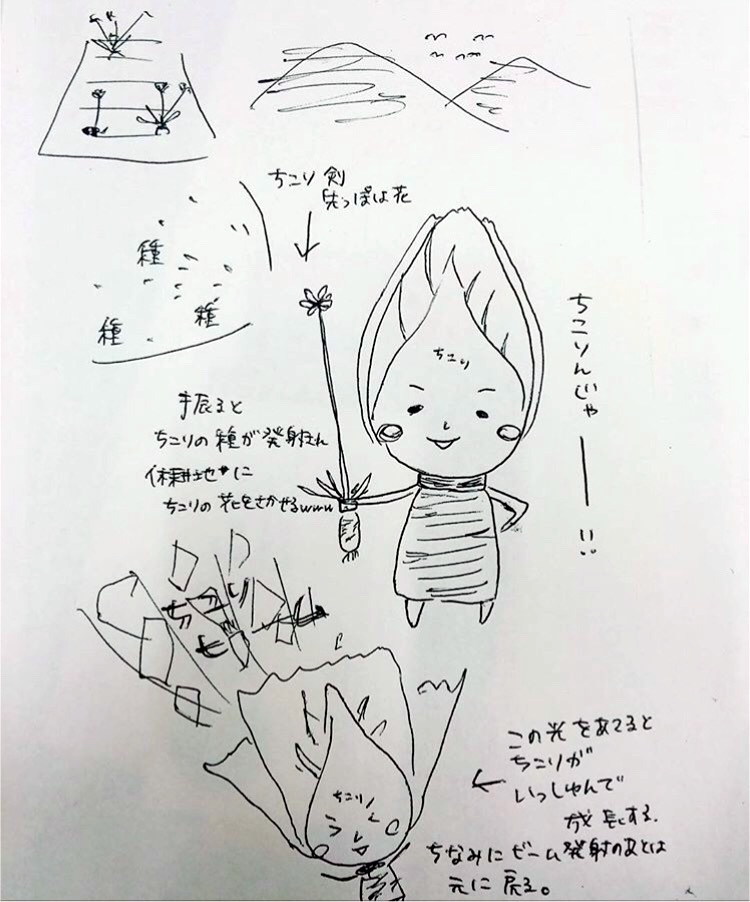 ちこり剣
先っぽは花
種
種
種
ちこり
ちこりんじゃーーい!!
振ると
ちこりの種が発射され
休耕地に
ちこりの花をさかせるwww
ちこり
この光をあてると
ちこりが
いっしゅんで
成長する.
ちなみにビーム発射のあとは
元に戻る。